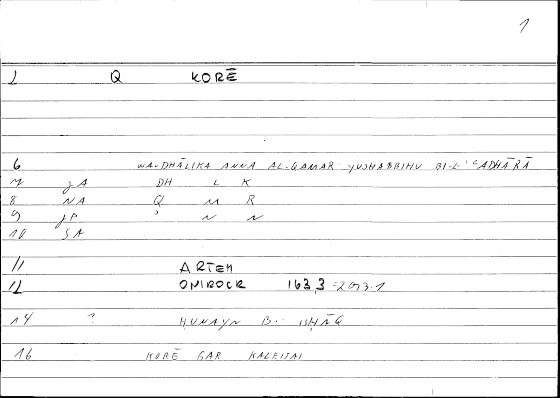 1
1 Q KORĒ
6 WA-DHĀLIKA ANNA AL-QAMAR YUSHABBIHU BI-L-ʿADHĀRĀ
7 JA DH L K
8 NA Q M R
9 JP ʾ N N
10 SA
11 ARTEM
12 ONIROCR 163,3 = 2093.1
14 ? ḤUNAYN B. ISḤĀQ
16 KORĒ GAR KALEITAI